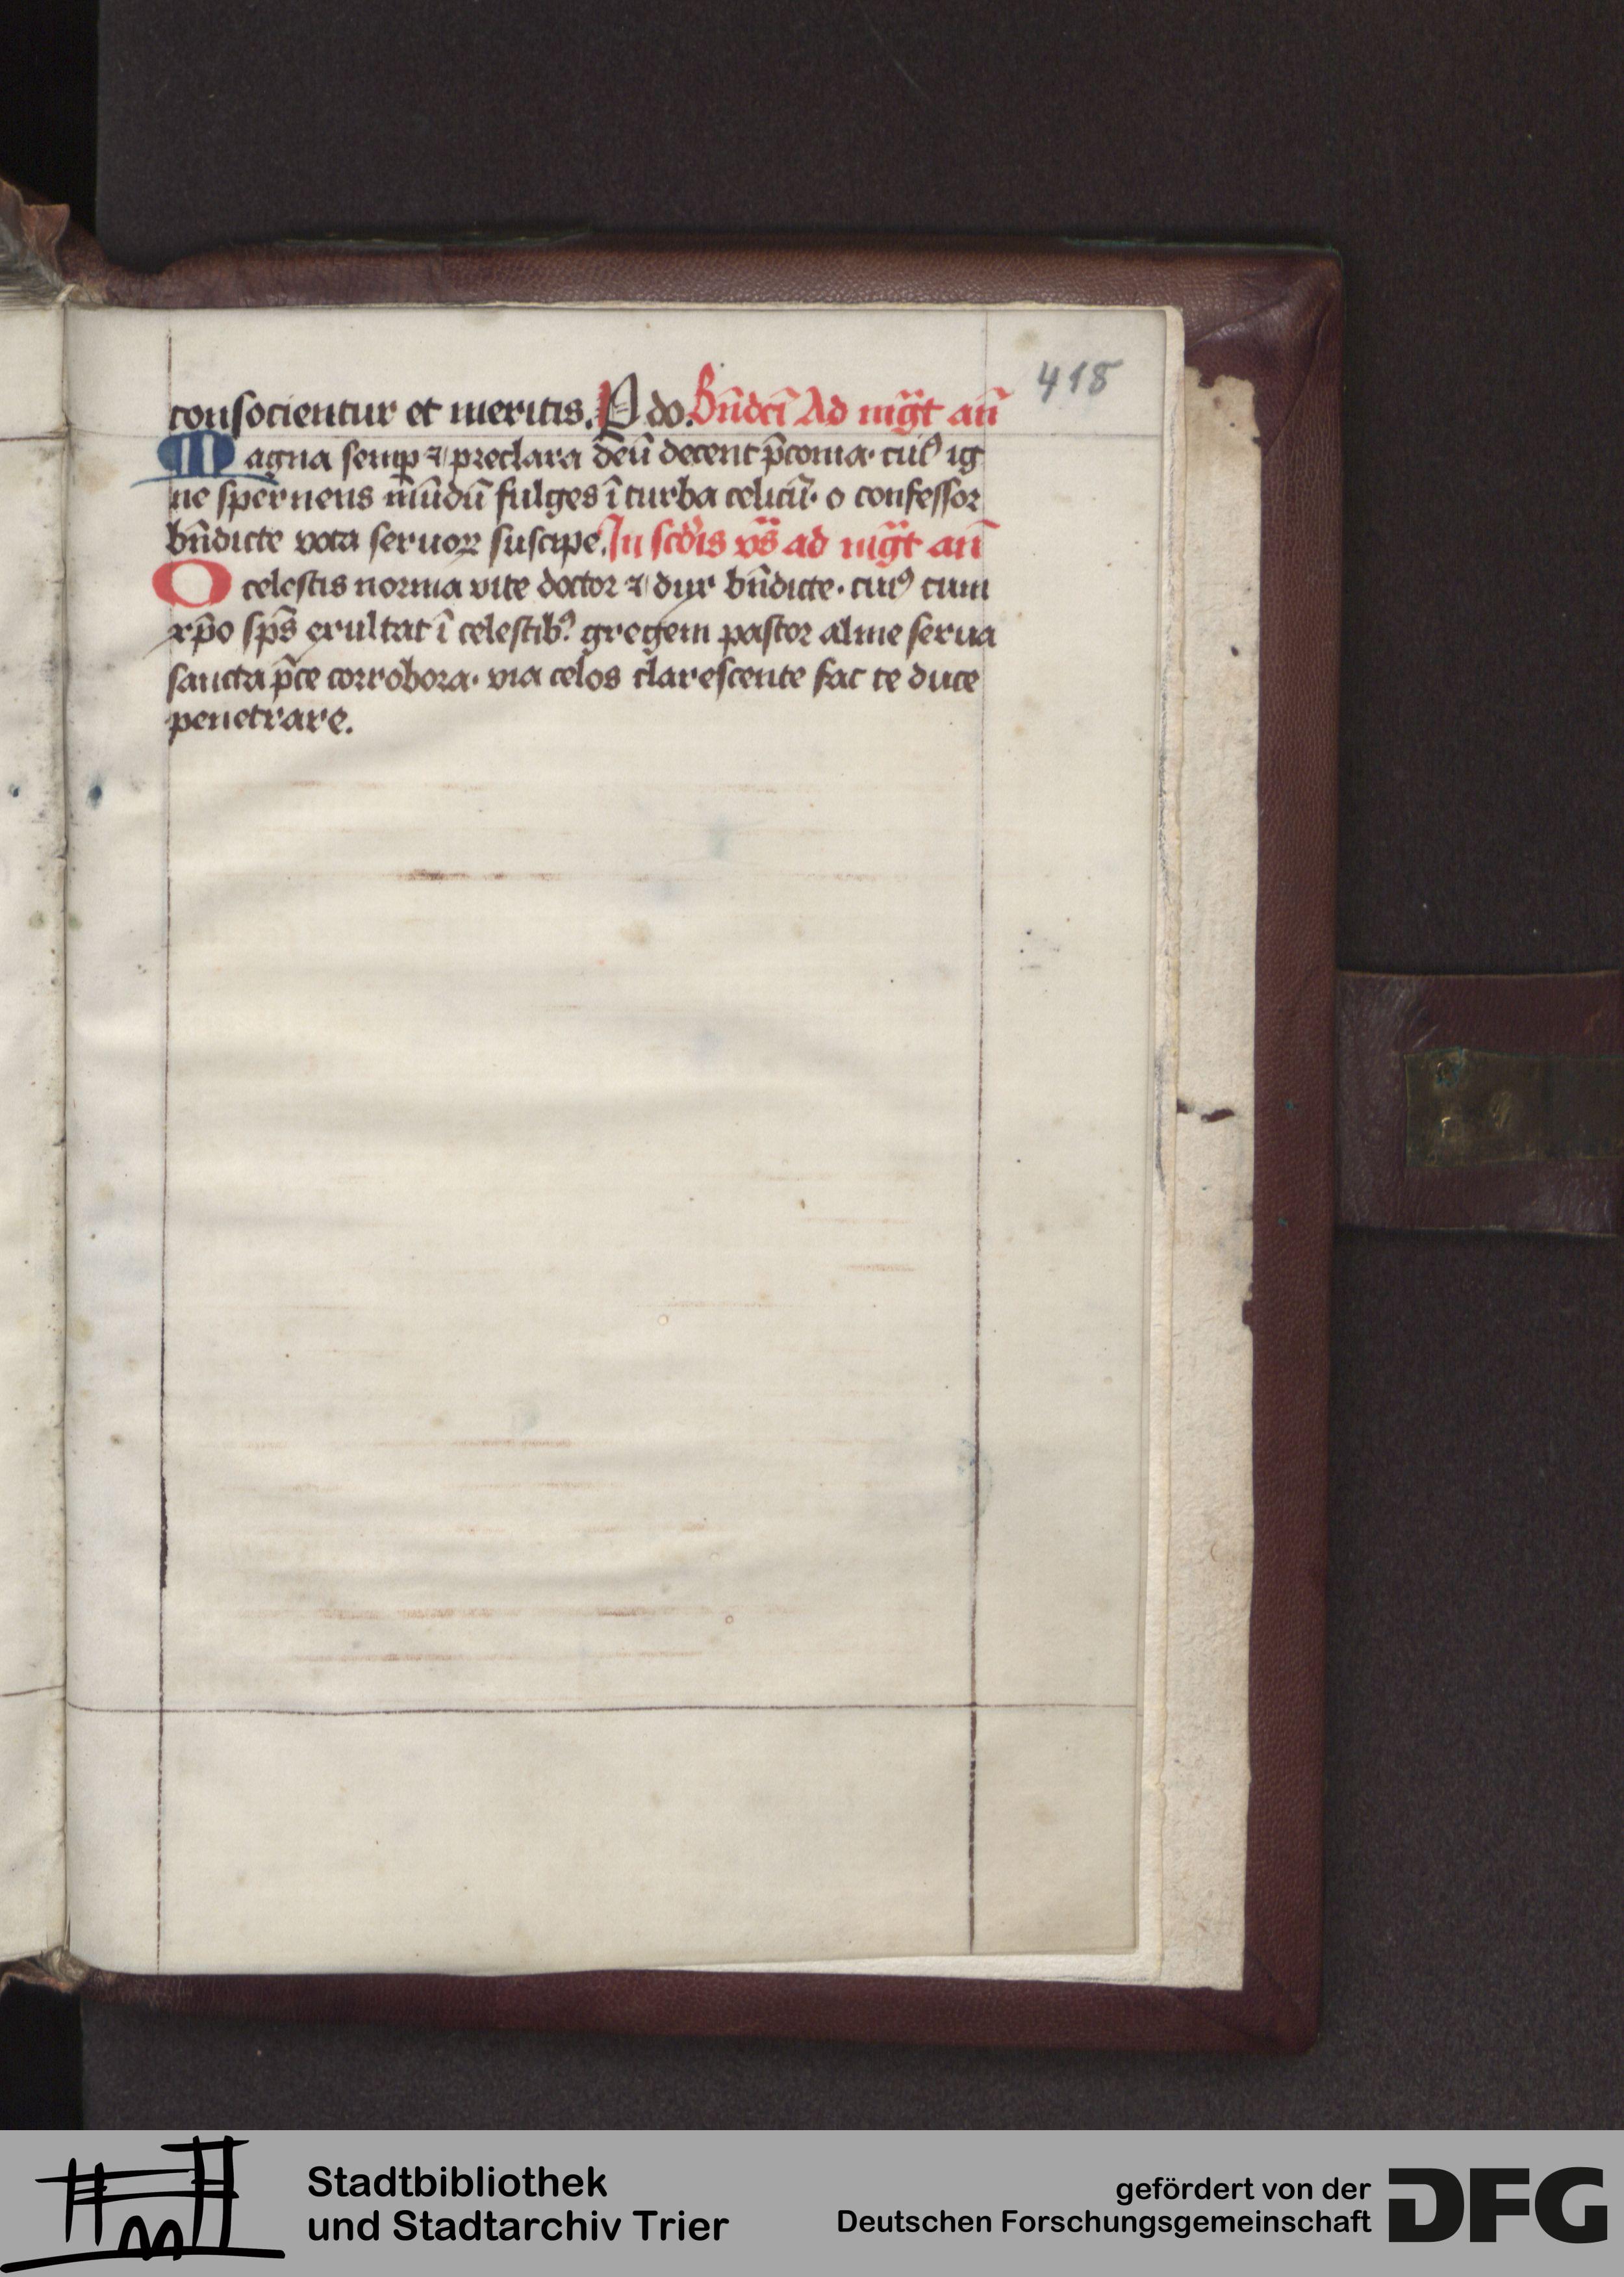 418
consocientur et meritis. P do. Bn̄dcī Ad mḡt an̄
Magna semꝑ ⁊ preclara deū decent p̄conia· cuiꝰ ig
ne spernens mūdū fulges ī turba celicū· o confessor
bn̄dicte vota seruoꝝ suscipe. In scd̄is vs̄ ad mḡt an̄
O celestis norma vite doctor ⁊ dux bn̄dicte· cuiꝰ cum
xp̄o sp̄s exultat ī celestibꝰ gregem pastor alme serua
sancta p̄ce corrobora· via celos clarescente fac te duce
penetrare.
Stadtbibliothek
und Stadtarchiv Trier
gefördert von der
Deutschen Forschungsgemeinschaft
DFG